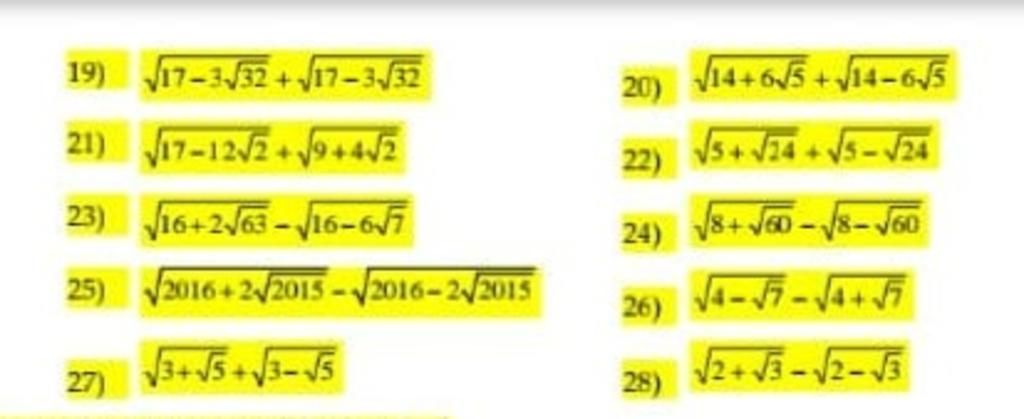 19) √(17−3√32) + √(17−3√32)
20) √(14+6√5) + √(14−6√5)
21) √(17−12√2) + √(9+4√2)
22) √(5+√24) + √(5−√24)
23) √(16+2√63) − √(16−6√7)
24) √(8+√60) − √(8−√60)
25) √(2016+2√2015) − √(2016−2√2015)
26) √(4−√7) − √(4+√7)
27) √(3+√5) + √(3−√5)
28) √(2+√3) − √(2−√3)